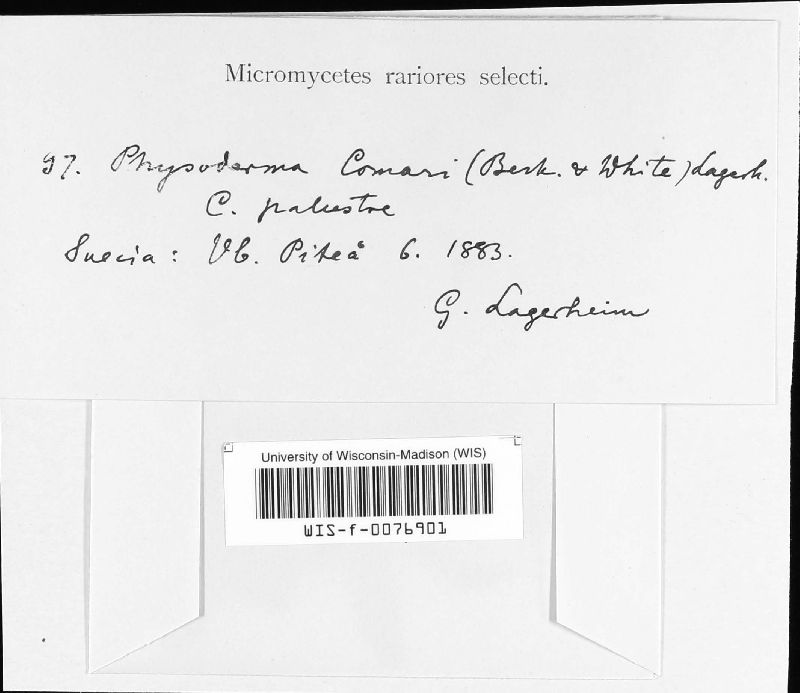 Micromycetes rariores selecti.
97. Physoderma Comari (Berk. & White) Lagerh.
C. palustre
Suecia: Vb. Piteå 6. 1883.
G. Lagerheim
University of Wisconsin-Madison (WIS)
WIS-f-0076901